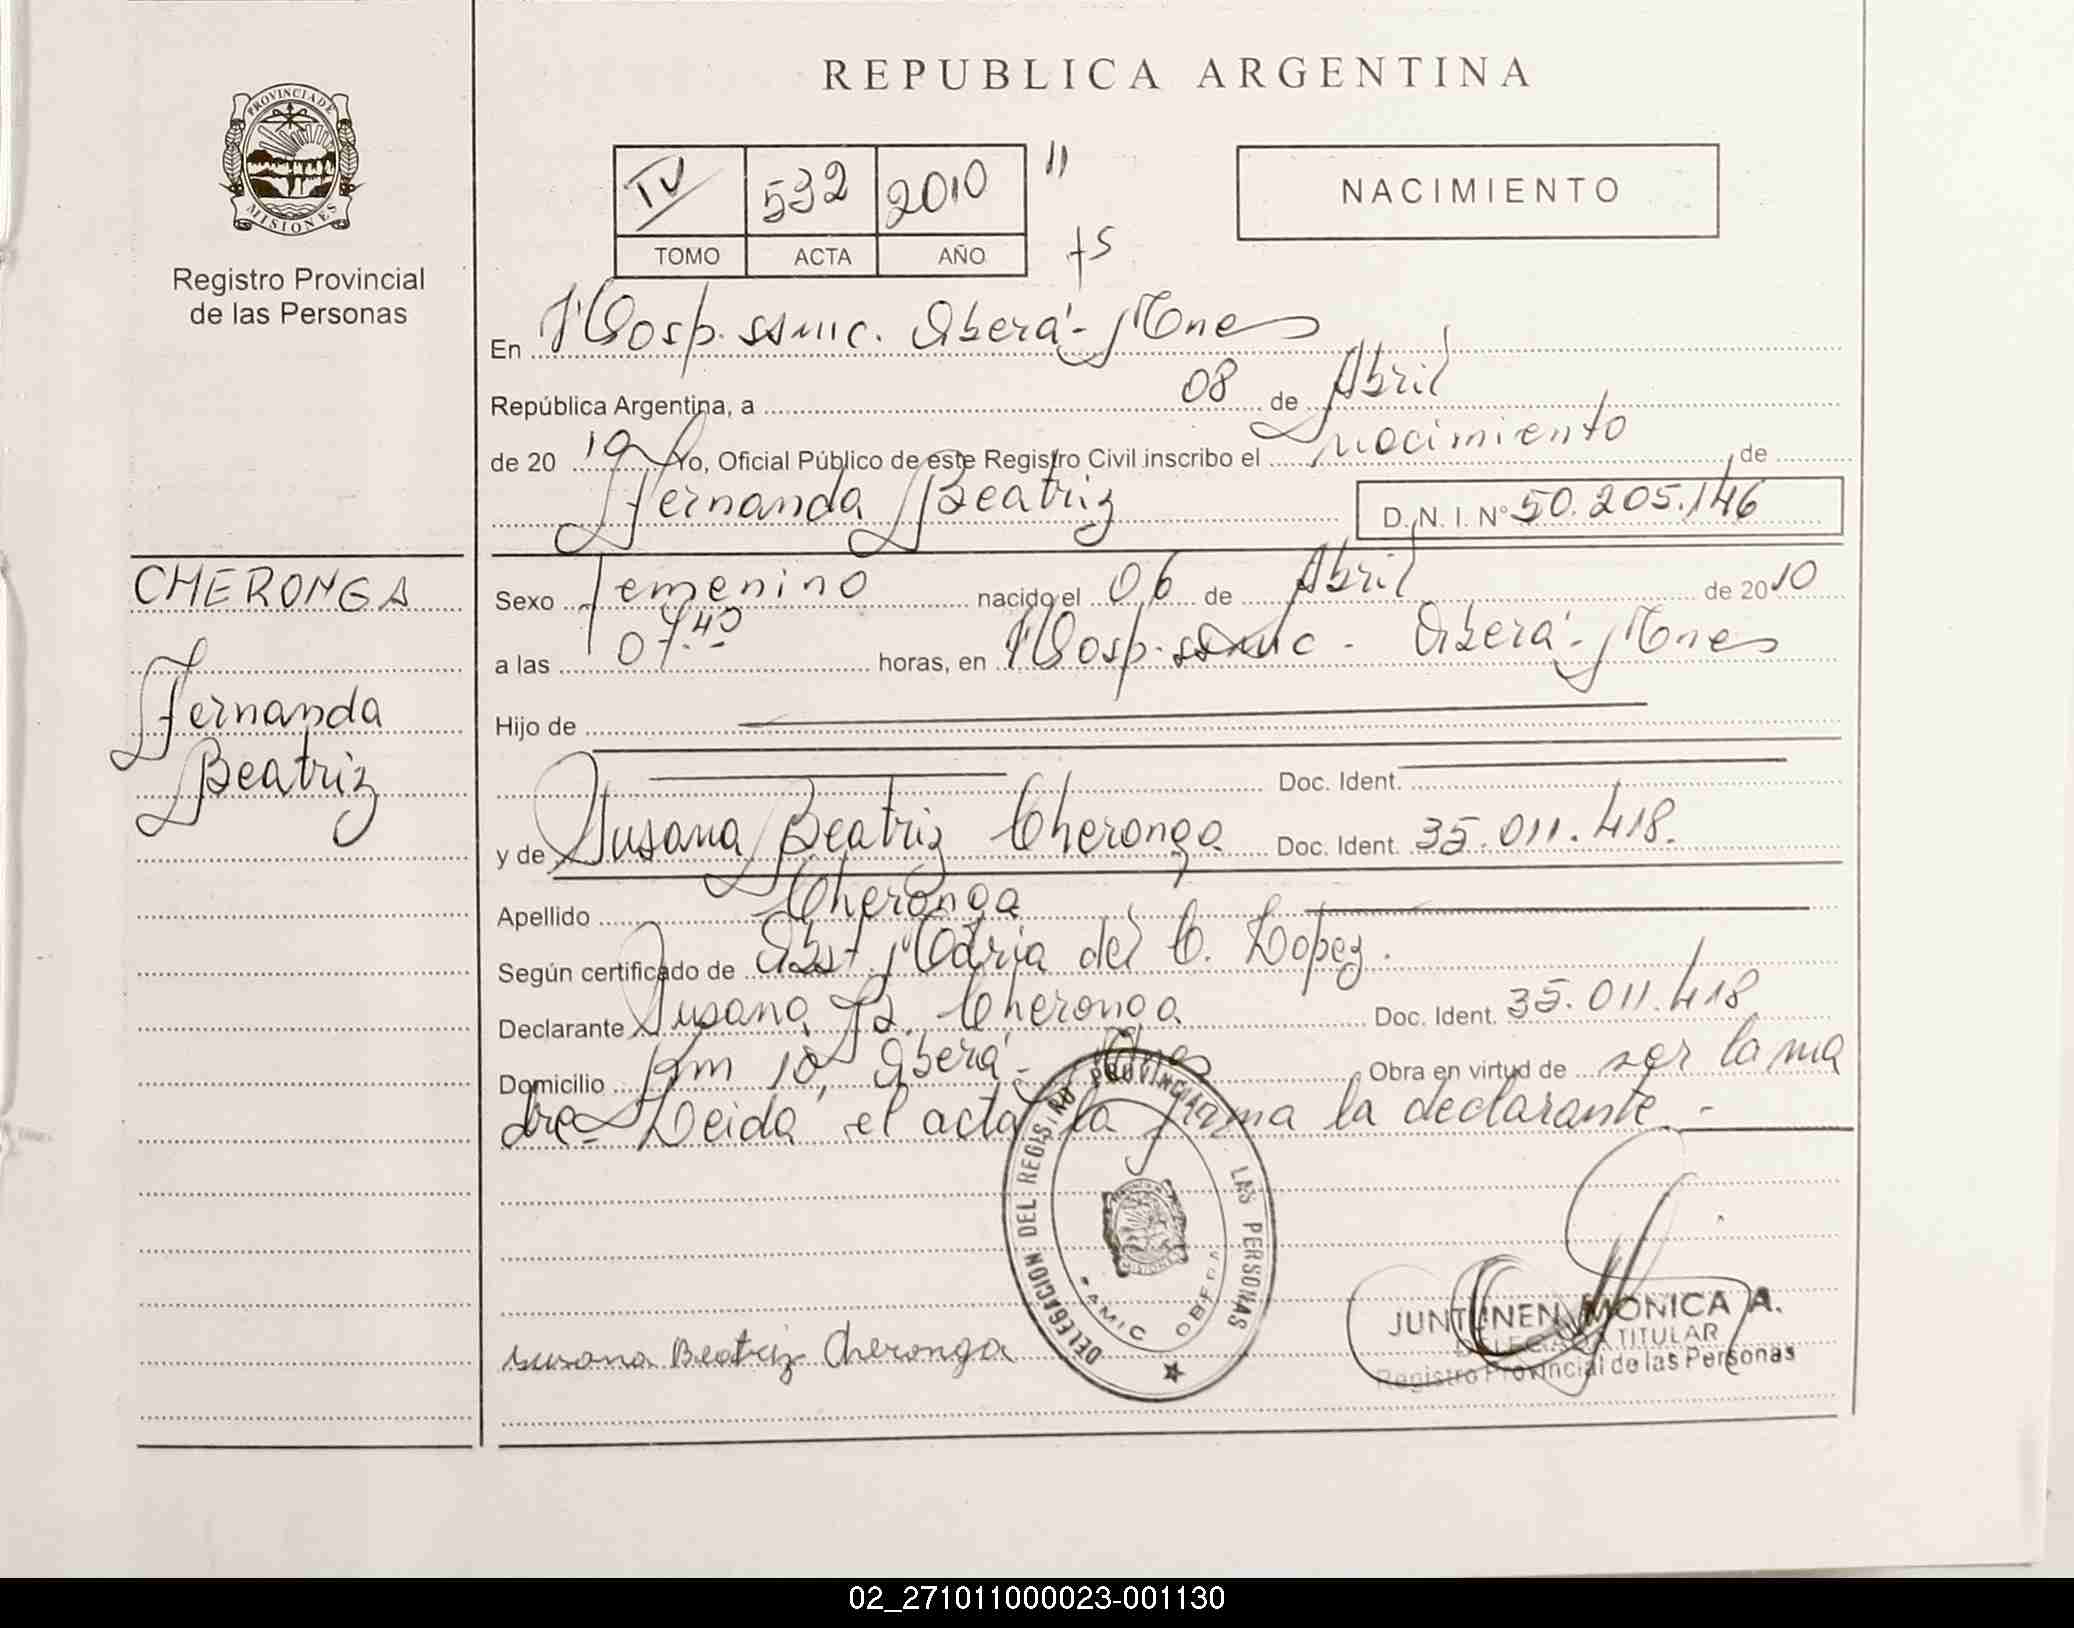 REPUBLICA ARGENTINA
PROVINCIA DE
MISIONES
Registro Provincial
de las Personas
IV 532 2010 "
TOMO ACTA AÑO
NACIMIENTO
En Hosp. Oberá - Mnes
República Argentina, a 08 de Abril
de 20 10 Yo, Oficial Público de este Registro Civil inscribo el nacimiento de
Fernanda Beatriz D. N. I. Nº 50.205.146
CHERONGA
Fernanda
Beatriz
Sexo Femenino nacido el 06 de Abril de 2010
a las 07.40 horas, en Hosp. Oberá - Mnes
Hijo de
Doc. Ident.
y de Susana Beatriz Cheronga Doc. Ident. 35.011.418.
Apellido Cheronga
Según certificado de Obst María del C. Lopez.
Declarante Susana B. Cheronga Doc. Ident. 35.011.418
Domicilio Km 10, Oberá - Mnes Obra en virtud de ser la ma
dre - Leida el acta la firma la declarante. -
DELEGACION DEL REGISTRO PROVINCIAL LAS PERSONAS
MISIONES
OBERA
Susana Beatriz Cheronga
JUNTUNEN MONICA A.
DELEGADA TITULAR
Registro Provincial de las Personas
02_271011000023-001130